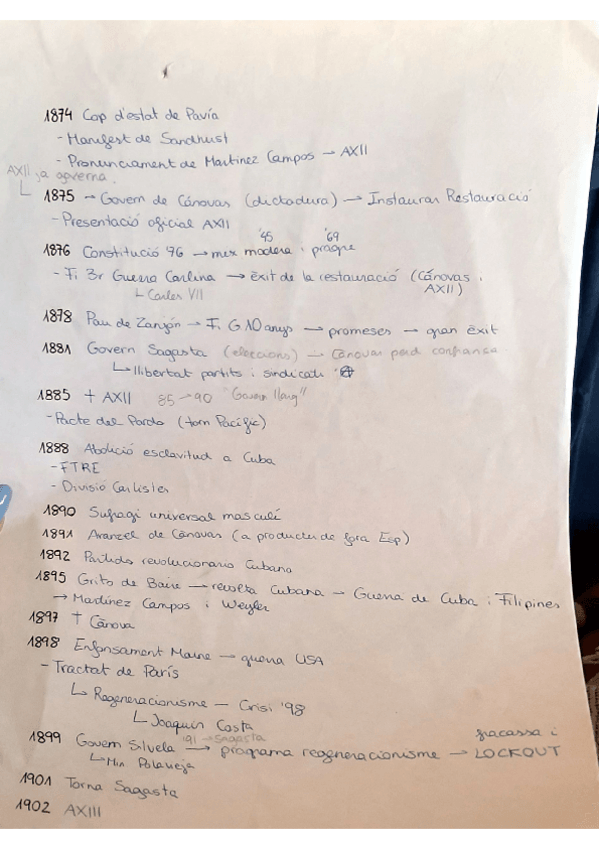 1874 Cop d'estat de Pavía
- Manifest de Sandhust
- Pronunciament de Martínez Campos → AXII
AXII ja governa.
1875 → Govern de Cánovas (dictadura) → Instaurar Restauració
- Presentació oficial AXII
'45 '69
1876 Constitució 76 → mix modera i progre
- Fi 3r Guerra Carlina → èxit de la restauració (Cánovas i AXII)
↳ Carles VII
1878 Pau de Zanjón → Fi G 10 anys → promeses → gran èxit
1881 Govern Sagasta (eleccions) → Cánovas perd confiança
↳ llibertat partits i sindicats Ⓐ
1885 † AXII 85 → 90 "Govern llarg"
- Pacte del Pardo (torn Pacífic)
1888 Abolició esclavitud a Cuba
- FTRE
- Divisió Carlistes
1890 Sufragi universal masculí
1891 Aranzel de Cánovas (a productes de fora Esp)
1892 Partido revolucionario Cubano
1895 Grito de Baire → revolta Cubana → Guerra de Cuba i Filipines
→ Martínez Campos i Weyler
1897 † Cánova
1898 Enfonsament Maine → guerra USA
- Tractat de París
↳ Regeneracionisme — Crisi '98
↳ Joaquín Costa
'91 → Sagasta
1899 Govern Silvela → programa regeneracionisme → fracassa i LOCKOUT
↳ Min Polavieja
1901 Torna Sagasta
1902 AXIII